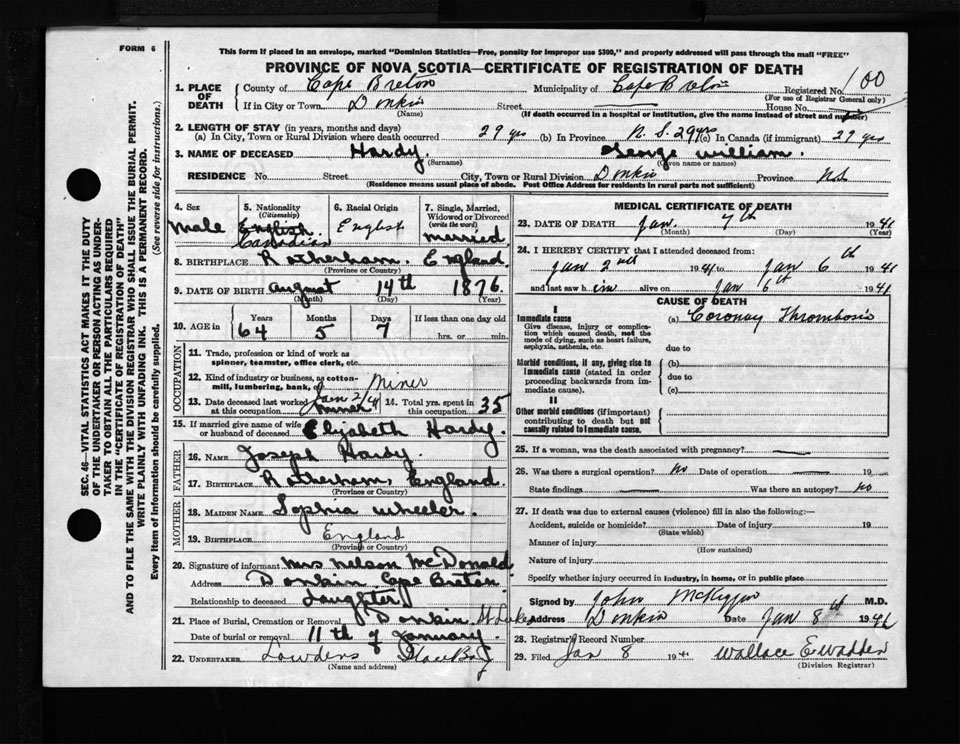 FORM 6
This form if placed in an envelope, marked "Dominion Statistics—Free, penalty for improper use $300," and properly addressed will pass through the mail "FREE"
PROVINCE OF NOVA SCOTIA—CERTIFICATE OF REGISTRATION OF DEATH
SEC. 46—VITAL STATISTICS ACT MAKES IT THE DUTY
OF THE UNDERTAKER OR PERSON ACTING AS UNDER-
TAKER TO OBTAIN ALL THE PARTICULARS REQUIRED
IN THE "CERTIFICATE OF REGISTRATION OF DEATH"
AND TO FILE THE SAME WITH THE DIVISION REGISTRAR WHO SHALL ISSUE THE BURIAL PERMIT.
WRITE PLAINLY WITH UNFADING INK. THIS IS A PERMANENT RECORD.
Every item of Information should be carefully supplied. (See reverse side for instructions.)
1. PLACE OF DEATH County of Cape Breton Municipality of Cape Breton Registered No. 100
(For use of Registrar General only)
If in City or Town Donkin Street House No.
(Name) (If death occurred in a hospital or institution, give the name instead of street and number)
2. LENGTH OF STAY (in years, months and days)
(a) In City, Town or Rural Division where death occurred 29 yrs (b) In Province N.S. 29 yrs (c) In Canada (if immigrant) 29 yrs
3. NAME OF DECEASED Hardy. George william.
(Surname) (Given name or names)
RESIDENCE No. Street City, Town or Rural Division Donkin Province NS
(Residence means usual place of abode. Post Office Address for residents in rural parts not sufficient)
4. Sex Male
5. Nationality (Citizenship) English. Canadian
6. Racial Origin English
7. Single, Married, Widowed or Divorced (write the word) married
8. BIRTHPLACE Rotherham. England.
(Province or Country)
9. DATE OF BIRTH august 14th 1876.
(Month) (Day) (Year)
10. AGE in Years 64 Months 5 Days 7 If less than one day old hrs. or min.
OCCUPATION
11. Trade, profession or kind of work as spinner, teamster, office clerk, etc.
12. Kind of industry or business, as cotton-mill, lumbering, bank, Miner
13. Date deceased last worked at this occupation Jan 2/41 miner
14. Total yrs. spent in this occupation 35
15. If married give name of wife or husband of deceased Elizabeth Hardy.
FATHER
16. NAME Joseph Hardy.
17. BIRTHPLACE Rotherham, England.
(Province or Country)
MOTHER
18. MAIDEN NAME Sophia wheeler.
19. BIRTHPLACE England
(Province or Country)
20. Signature of informant Mrs Nelson McDonald
Address Donkin Cape Breton
Relationship to deceased Daughter
21. Place of Burial, Cremation or Removal Donkin St Lukes
Date of burial or removal 11th of January.
22. UNDERTAKER Lowdens Glace Bay
(Name and address)
MEDICAL CERTIFICATE OF DEATH
23. DATE OF DEATH Jan. 7th 1941
(Month) (Day) (Year)
24. I HEREBY CERTIFY that I attended deceased from:
Jan 2nd 1941 to Jan 6th 1941
and last saw him alive on Jan 6th 1941
CAUSE OF DEATH
I
Immediate cause (a) Coronary Thrombosis
Give disease, injury or complication which caused death, not the mode of dying, such as heart failure, asphyxia, asthenia, etc.
due to
Morbid conditions, if any, giving rise to immediate cause (stated in order proceeding backwards from immediate cause).
(b)
due to
(c)
II
Other morbid conditions (if important) contributing to death but not causally related to immediate cause.
25. If a woman, was the death associated with pregnancy?
26. Was there a surgical operation? No Date of operation 19
State findings Was there an autopsy? No
27. If death was due to external causes (violence) fill in also the following:—
Accident, suicide or homicide? Date of injury 19
(State which)
Manner of injury
(How sustained)
Nature of injury
Specify whether injury occurred in industry, in home, or in public place
Signed by John McKiggan M.D.
Address Donkin Date Jan 8th 1941
28. Registrar's Record Number
29. Filed Jan 8 1941 Wallace E Wadden
(Division Registrar)